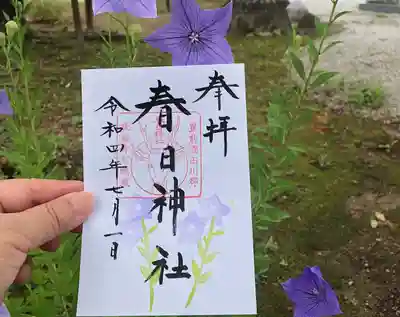 奉拝
春日神社
令和四年七月一日